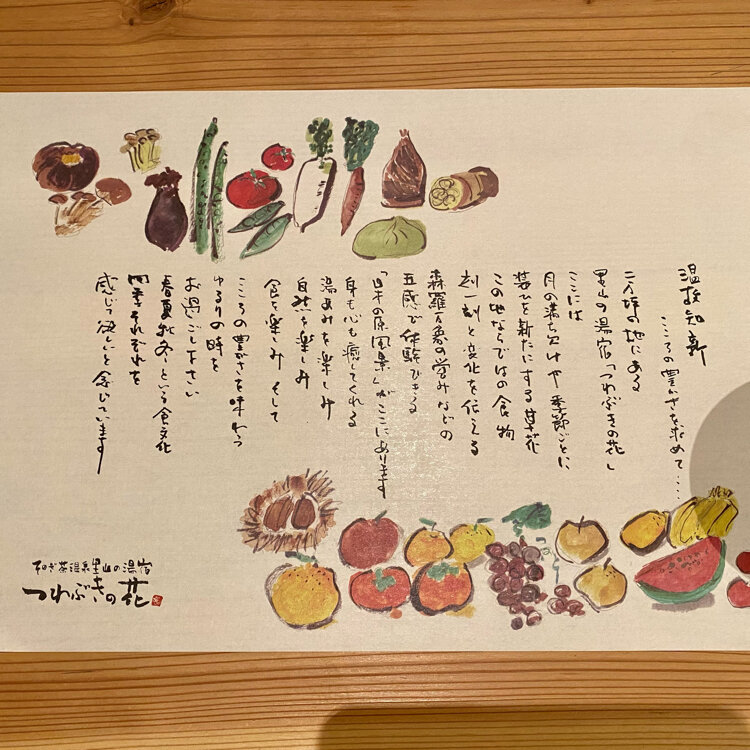 温故知新
こころの豊かさを求めて・・・・
二千坪の地にある
里山の湯宿「つわぶきの花」
ここには
月の満ち欠けや季節ごとに
装ひを新たにする草花
この地ならではの食物
刻一刻と変化を伝える
森羅万象の営みなどの
五感で体験できる
「日本の原風景」がここにあります
身も心も癒してくれる
湯あみを楽しみ
自然を楽しみ
食を楽しみ そして
こころの豊かさを味わう
ゆるりの時を
お過ごし下さい
春夏秋冬という食文化
四季それぞれを
感じて欲しいと念じています
そのぎ茶温泉里山の湯宿
つわぶきの花